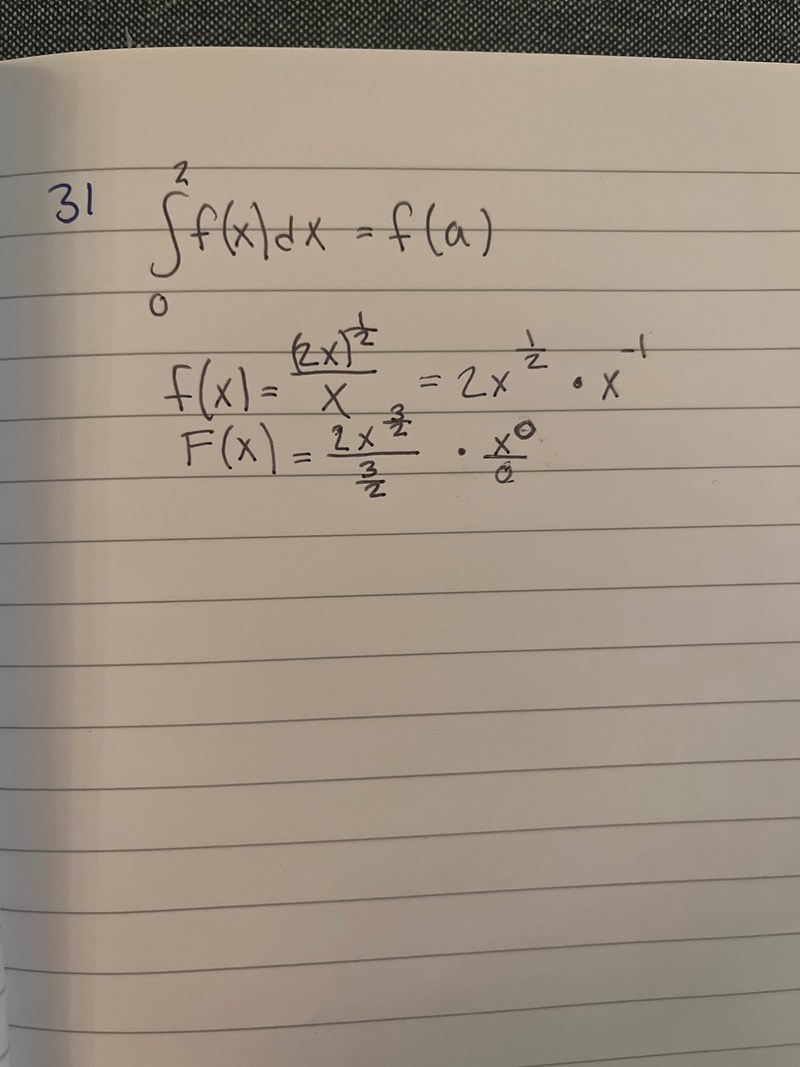 31 ∫₀² f(x)dx = f(a)
f(x) = (2x)^(1/2) / x = 2x^(1/2) · x^(-1)
F(x) = 2x^(3/2) / (3/2) · x^0 / 0